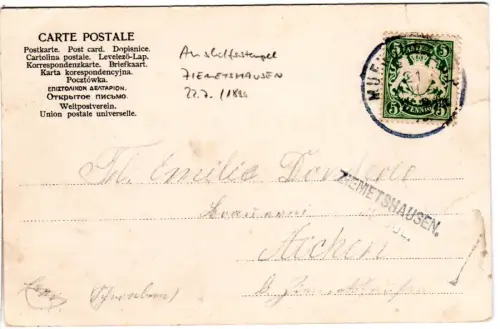 CARTE POSTALE
Postkarte. Post card. Dopisnice.
Cartolina postale. Levelező-Lap.
Korrespondenzkarte. Briefkaart.
Karta korespondencyjna.
Pocztówka.
ΕΠΙΣΤΟΛΙΚΟΝ ΔΕΛΤΑΡΙΟΝ.
Открытое письмо.
Weltpostverein.
Union postale universelle.
Aushilfsstempel
ZIEMETSHAUSEN
5 5
PFENNIG
Emilie
Brauerei
Aichen
ZIEMETSHAUSEN.
JUL.